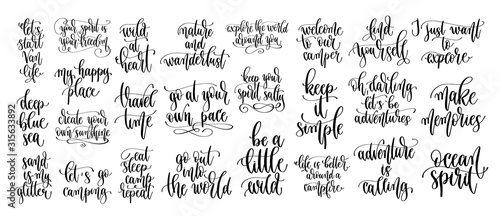 let's
start
van
life
your spirit is
your freedom
wild
at
heart
nature
and
wanderlust
explore the world
around you
welcome
to our
camper
find
yourself
I just want
to
expore
my happy
place
travel
time
go at your
own pace
keep your
spirit salty
keep
it
simple
oh, darling
let's be
adventures
make
memories
deep
blue
sea
create your
own sunshine
be a
little
wild
sand
is my
glitter
let's go
camping
eat
sleep
camp
repeat
go out
into
the world
life is better
around a
campfire
adventure
is
calling
ocean
spirit
Adobe Stock | #315633892